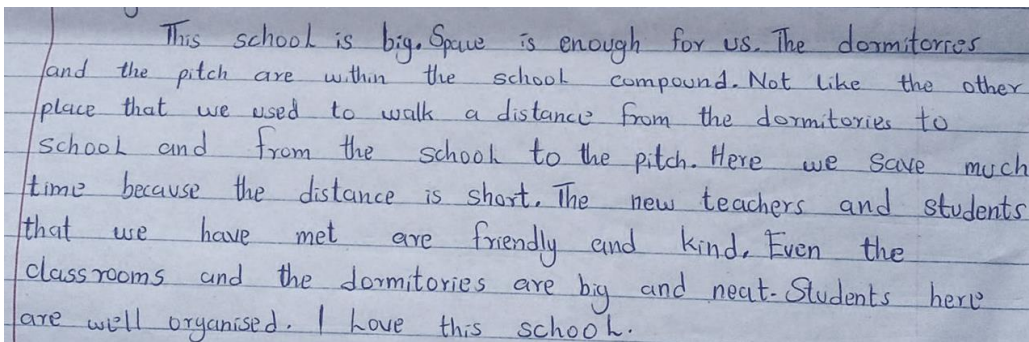 This school is big. Space is enough for us. The dormitories
and the pitch are within the school compound. Not like the other
place that we used to walk a distance from the dormitories to
school and from the school to the pitch. Here we save much
time because the distance is short. The new teachers and students
that we have met are friendly and kind. Even the
classrooms and the dormitories are big and neat. Students here
are well organised. I love this school.